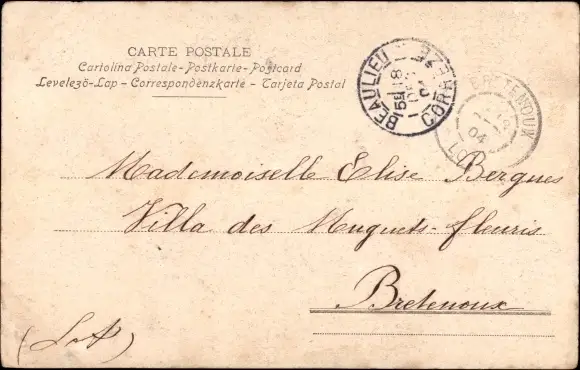 CARTE POSTALE
Cartolina Postale - Postkarte - Postcard
Levelező-Lap - Correspondenzkarte - Tarjeta Postal
BEAULIEU
CORRÈZE
BRETENOUX
LOT
04
Mademoiselle Elise Bergues
Villa des Muguets-fleuris
Bretenoux
(Lot)